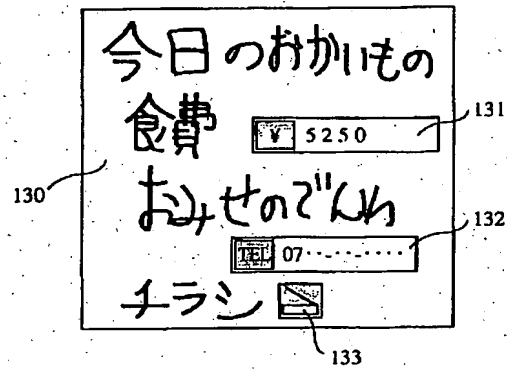 今日のおかいもの
食費 ¥ 5250 131
130
おみせのでんわ
132
TEL 07··-··-····
チラシ
133